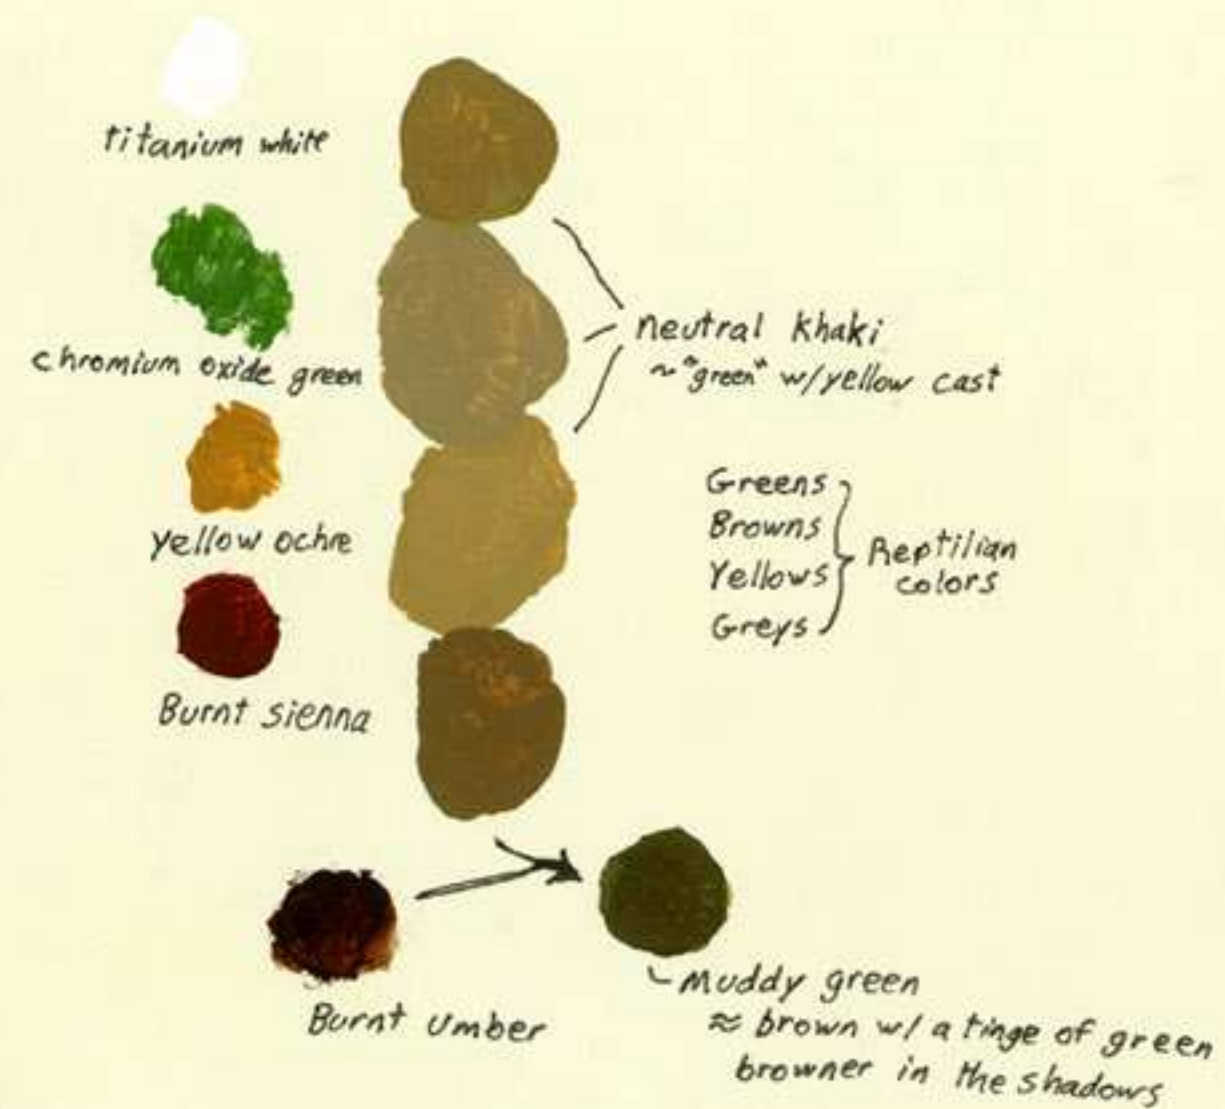 titanium white
chromium oxide green
yellow ochre
Burnt sienna
neutral khaki
~"green" w/yellow cast
Greens
Browns
Yellows
Greys
Reptilian
colors
Burnt umber
muddy green
≈ brown w/ a tinge of green
browner in the shadows